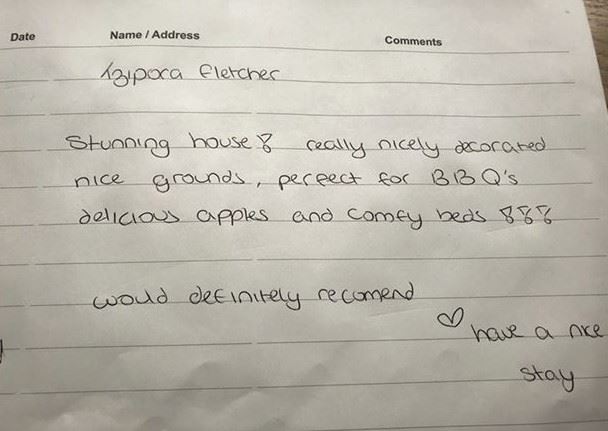 Date Name / Address Comments
Tzipora Fletcher
Stunning house! really nicely decorated
nice grounds, perfect for BBQ's
delicious apples and comfy beds !!!
would definitely recomend
♡ have a nice
stay